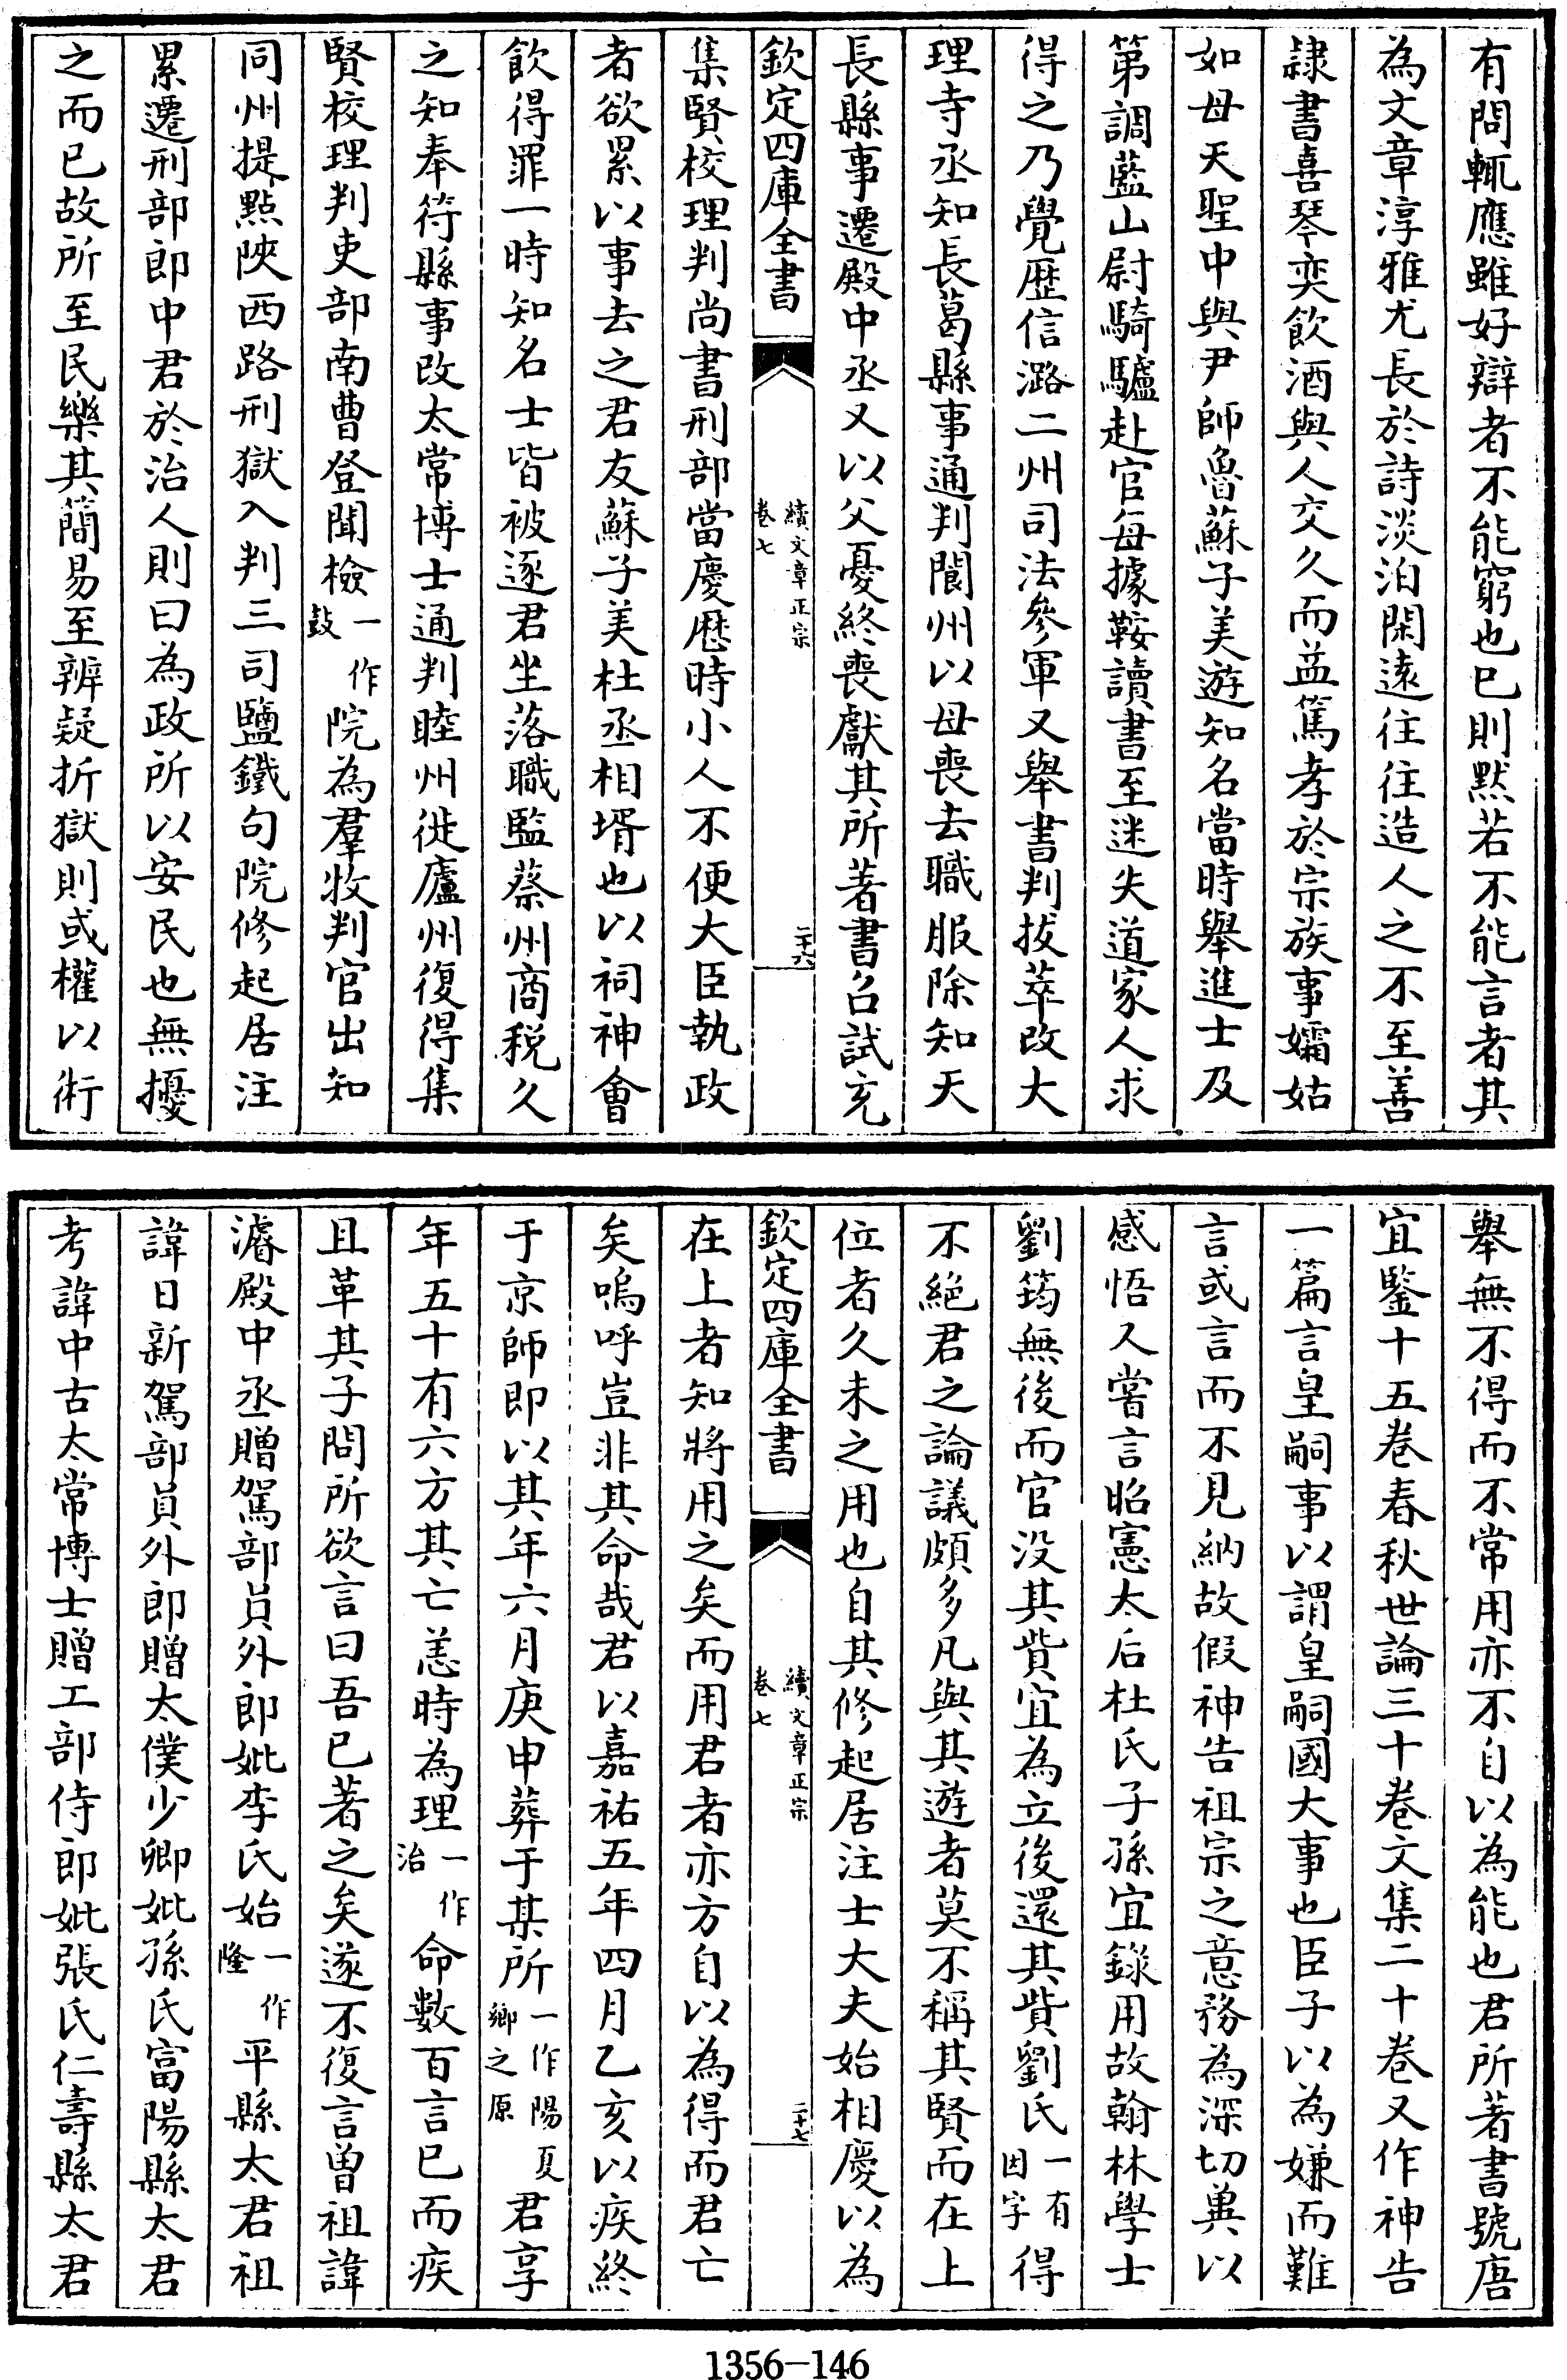 有問輒應雖好辯者不能窮也已則默若不能言者其
為文章淳雅尤長於詩淡泊閑遠往往造人之不至善
隷書喜琴奕飲酒與人交久而益篤孝於宗族事孀姑
如母天聖中與尹師魯蘇子美遊知名當時舉進士及
第調藍山尉騎驢赴官每據鞍讀書至迷失道家人求
得之乃覺歴信潞二州司法參軍又舉書判拔萃改大
理寺丞知長葛縣事通判閬州以母喪去職服除知天
長縣事遷殿中丞又以父憂終喪獻其所著書召試充
欽定四庫全書
續文章正宗
卷七
二十六
集賢校理判尚書刑部當慶歴時小人不便大臣執政
者欲累以事去之君友蘇子美杜丞相壻也以祠神會
飲得罪一時知名士皆被逐君坐落職監蔡州商税久
之知奉符縣事改太常博士通判睦州徙廬州復得集
賢校理判吏部南曹登聞檢一作鼓院為羣牧判官出知
同州提㸃陜西路刑獄入判三司鹽鐵句院修起居注
累遷刑部郎中君於治人則曰為政所以安民也無擾
之而已故所至民樂其簡易至辨疑折獄則或權以術
舉無不得而不常用亦不自以為能也君所著書號唐
宜鑒十五巻春秋世論三十巻文集二十巻又作神告
一篇言皇嗣事以謂皇嗣國大事也臣子以為嫌而難
言或言而不見納故假神告祖宗之意務為深切兾以
感悟又嘗言昭憲太后杜氏子孫宜錄用故翰林學士
劉筠無後而官没其貲宜為立後還其貲劉氏一有因字得
不絕君之論議頗多凡與其遊者莫不稱其賢而在上
位者久未之用也自其修起居注士大夫始相慶以為
欽定四庫全書
續文章正宗
卷七
二十七
在上者知將用之矣而用君者亦方自以為得而君亡
矣嗚呼豈非其命哉君以嘉祐五年四月乙亥以疾終
于京師即以其年六月庚申葬于某所一作陽夏鄉之原君享
年五十有六方其亡恙時為理一作治命數百言已而疾
且革其子問所欲言曰吾已著之矣遂不復言曽祖諱
濬殿中丞贈駕部員外郎妣李氏始一作隆平縣太君祖
諱日新駕部員外郎贈太僕少卿妣孫氏富陽縣太君
考諱中古太常博士贈工部侍郎妣張氏仁壽縣太君
1356-146